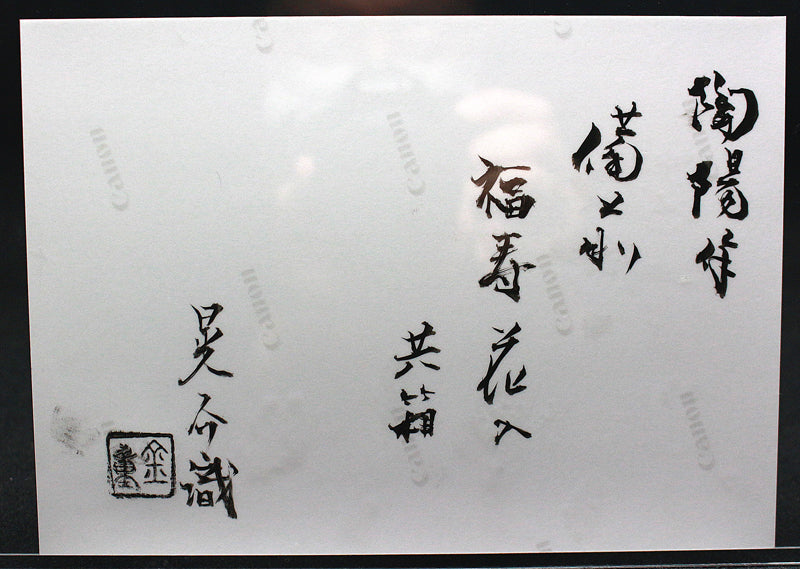 陶陽作
備前
福寿花入
共箱
晃介識
Canon
Canon
Canon
Canon
Canon
Canon
Canon
Canon